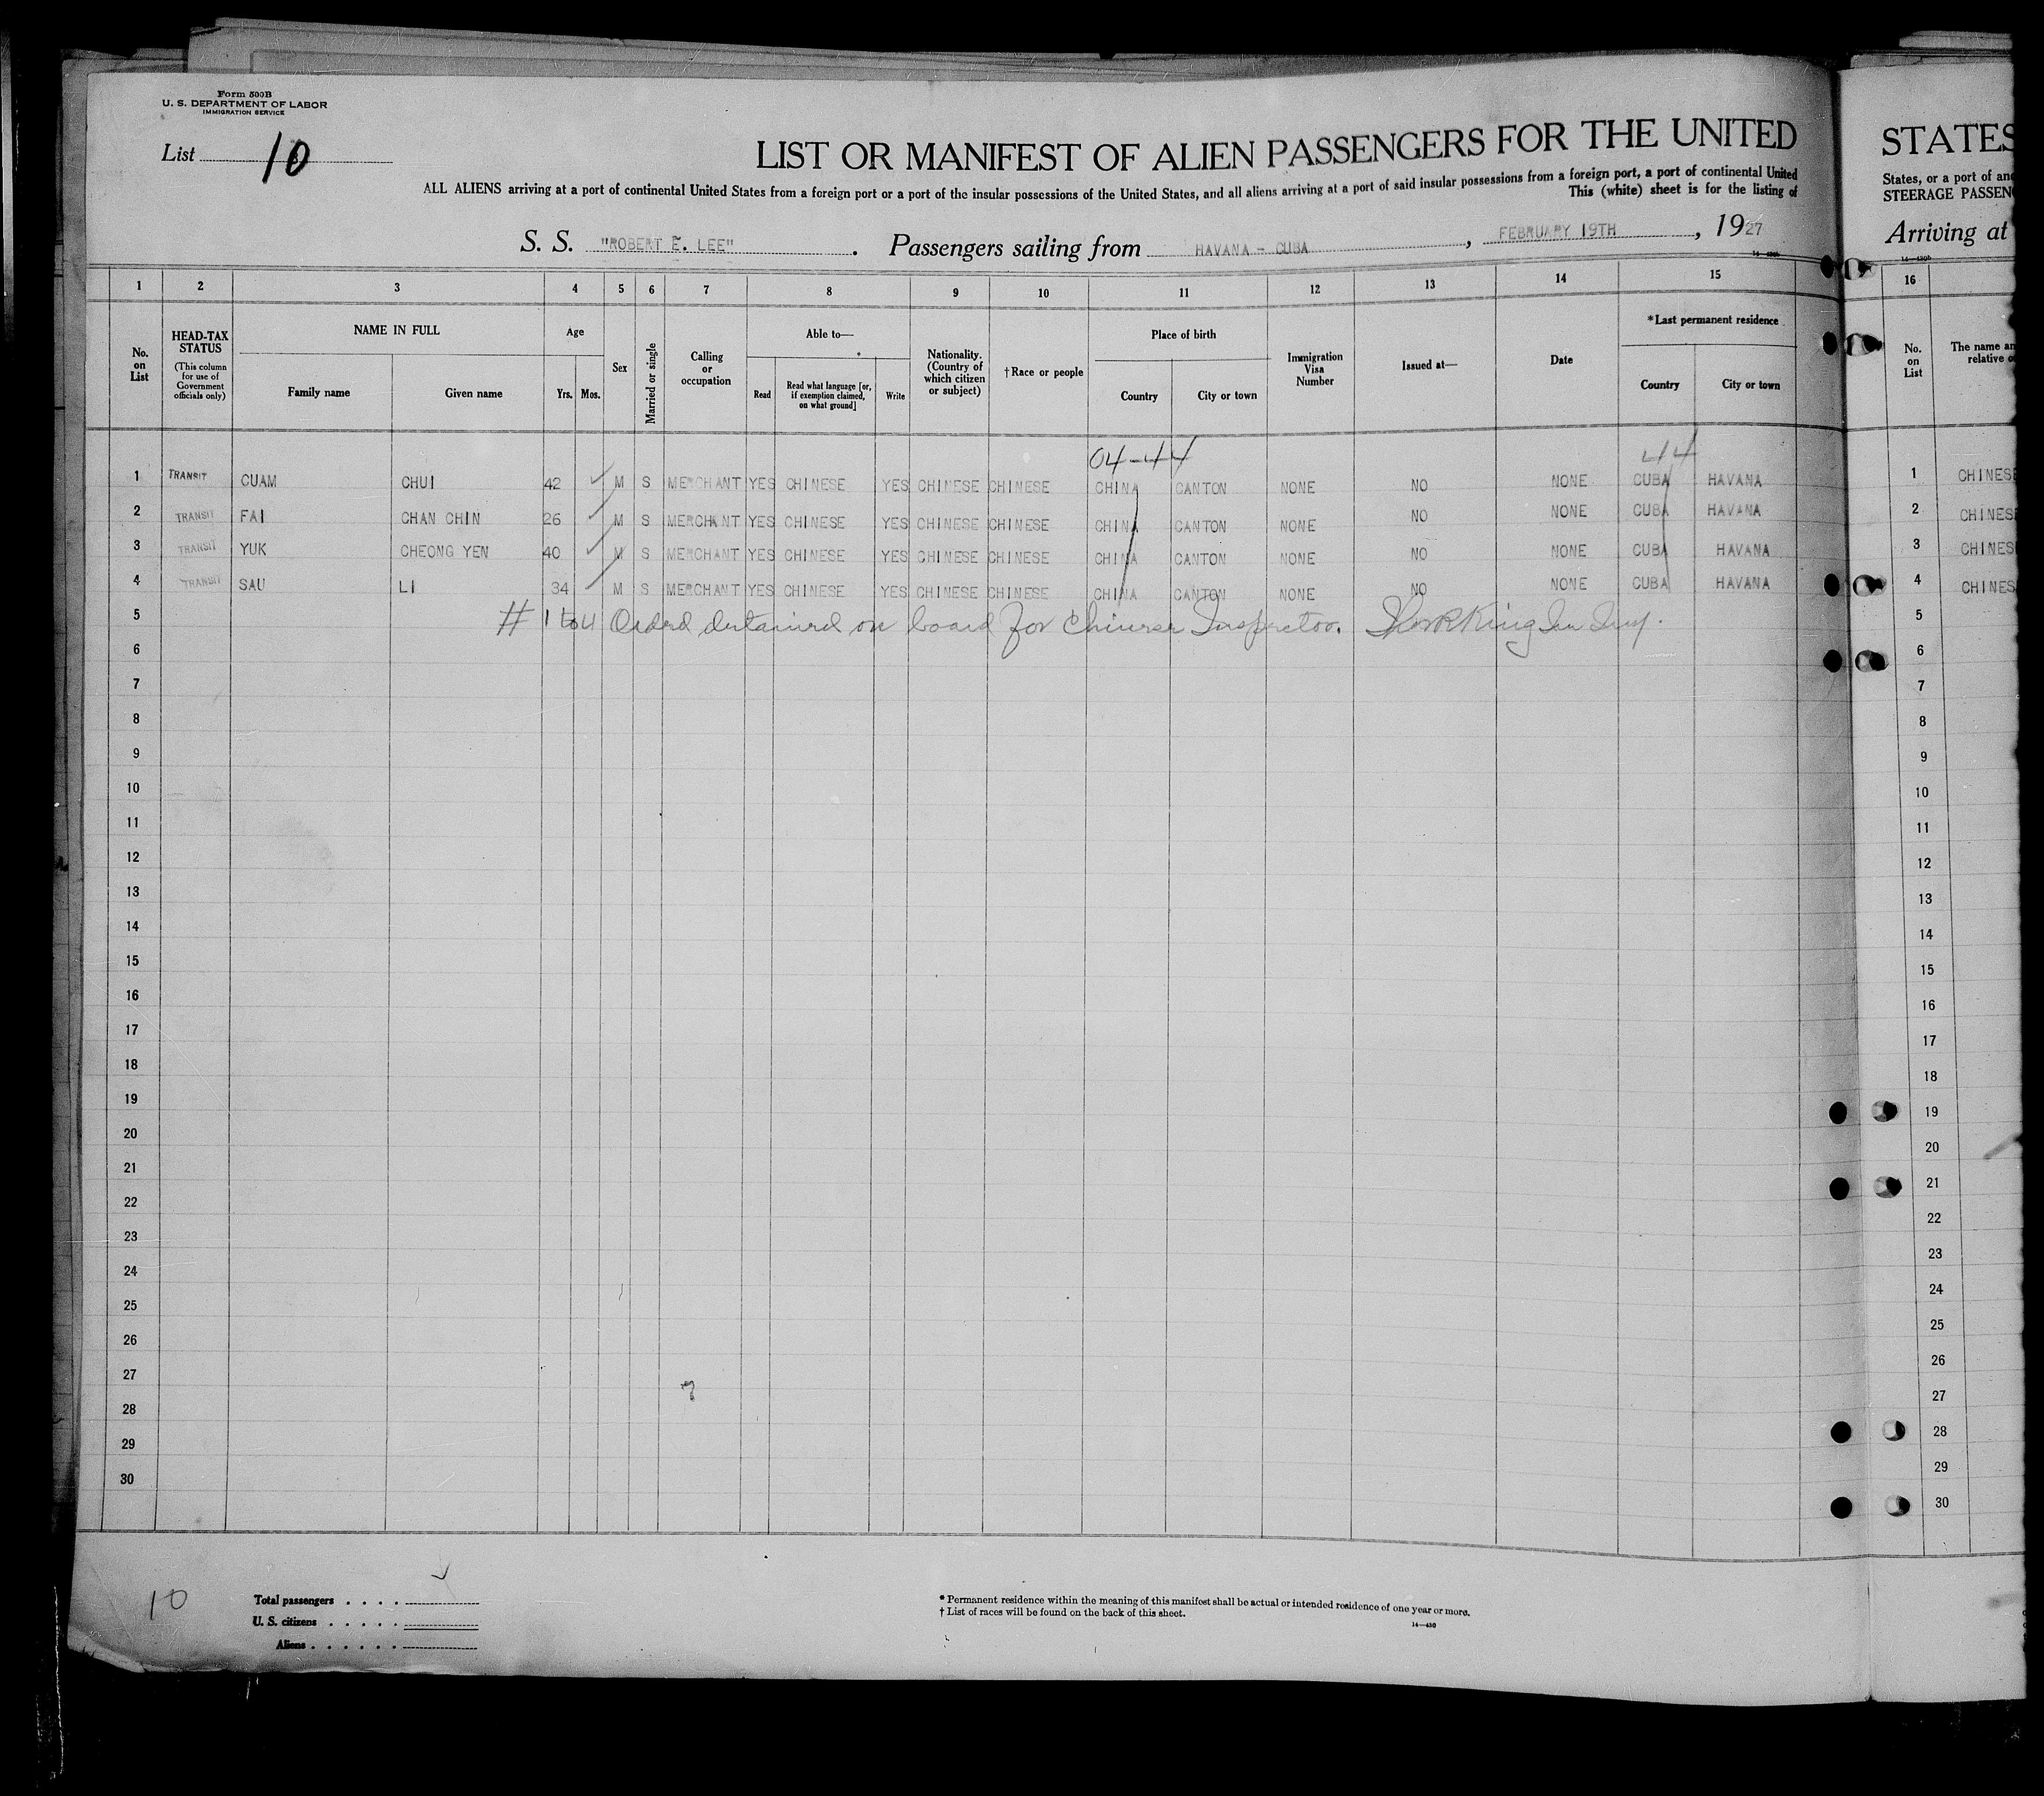 Form 500B
U. S. DEPARTMENT OF LABOR
IMMIGRATION SERVICE
List 10
LIST OR MANIFEST OF ALIEN PASSENGERS FOR THE UNITED
ALL ALIENS arriving at a port of continental United States from a foreign port or a port of the insular possessions of the United States, and all aliens arriving at a port of said insular possessions from a foreign port, a port of continental United
This (white) sheet is for the listing of
S. S. "ROBERT E. LEE". Passengers sailing from HAVANA - CUBA, FEBRUARY 19TH, 1927
14—430b
1 2 3 4 5 6 7 8 9 10 11 12 13 14 15
No. on List
HEAD-TAX STATUS (This column for use of Government officials only)
NAME IN FULL
Family name Given name
Age
Yrs. Mos.
Sex
Married or single
Calling or occupation
Able to—
Read Read what language [or, if exemption claimed, on what ground] Write
Nationality. (Country of which citizen or subject)
†Race or people
Place of birth
Country City or town
Immigration Visa Number
Issued at—
Date
*Last permanent residence
Country City or town
04-44 44
1 TRANSIT CUAM CHUI 42 M S MERCHANT YES CHINESE YES CHINESE CHINESE CHINA CANTON NONE NO NONE CUBA HAVANA
2 TRANSIT FAI CHAN CHIN 26 M S MERCHANT YES CHINESE YES CHINESE CHINESE CHINA CANTON NONE NO NONE CUBA HAVANA
3 TRANSIT YUK CHEONG YEN 40 M S MERCHANT YES CHINESE YES CHINESE CHINESE CHINA CANTON NONE NO NONE CUBA HAVANA
4 TRANSIT SAU LI 34 M S MERCHANT YES CHINESE YES CHINESE CHINESE CHINA CANTON NONE NO NONE CUBA HAVANA
5 # 1 to 4 Orderd detained on board for Chinese Inspector.
6
7
8
9
10
11
12
13
14
15
16
17
18
19
20
21
22
23
24
25
26
27
28
29
30
10
Total passengers
U. S. citizens
Aliens
* Permanent residence within the meaning of this manifest shall be actual or intended residence of one year or more.
† List of races will be found on the back of this sheet.
14—430
STATES
States, or a port of
STEERAGE
Arriving at
14—430b
16
No. on List
The name
relative
1 CHINESE
2 CHINES
3 CHINES
4 CHINES
5
6
7
8
9
10
11
12
13
14
15
16
17
18
19
20
21
22
23
24
25
26
27
28
29
30